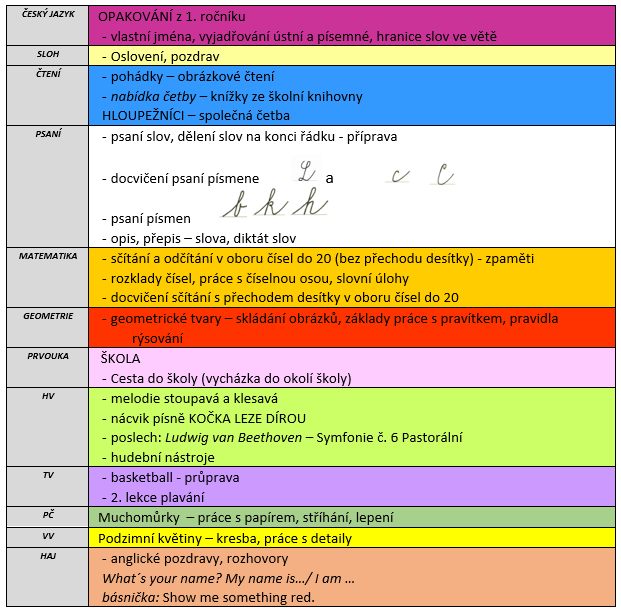 ČESKÝ JAZYK
OPAKOVÁNÍ z 1. ročníku
- vlastní jména, vyjadřování ústní a písemné, hranice slov ve větě
SLOH
- Oslovení, pozdrav
ČTENÍ
- pohádky – obrázkové čtení
- nabídka četby – knížky ze školní knihovny
HLOUPEŽNÍCI – společná četba
PSANÍ
- psaní slov, dělení slov na konci řádku - příprava
- docvičení psaní písmene L a c C
- psaní písmen b k h
- opis, přepis – slova, diktát slov
MATEMATIKA
- sčítání a odčítání v oboru čísel do 20 (bez přechodu desítky) - zpaměti
- rozklady čísel, práce s číselnou osou, slovní úlohy
- docvičení sčítání s přechodem desítky v oboru čísel do 20
GEOMETRIE
- geometrické tvary – skládání obrázků, základy práce s pravítkem, pravidla
rýsování
PRVOUKA
ŠKOLA
- Cesta do školy (vycházka do okolí školy)
HV
- melodie stoupavá a klesavá
- nácvik písně KOČKA LEZE DÍROU
- poslech: Ludwig van Beethoven – Symfonie č. 6 Pastorální
- hudební nástroje
TV
- basketball - průprava
- 2. lekce plavání
PČ
Muchomůrky – práce s papírem, stříhání, lepení
VV
Podzimní květiny – kresba, práce s detaily
HAJ
- anglické pozdravy, rozhovory
What´s your name? My name is…/ I am …
básnička: Show me something red.